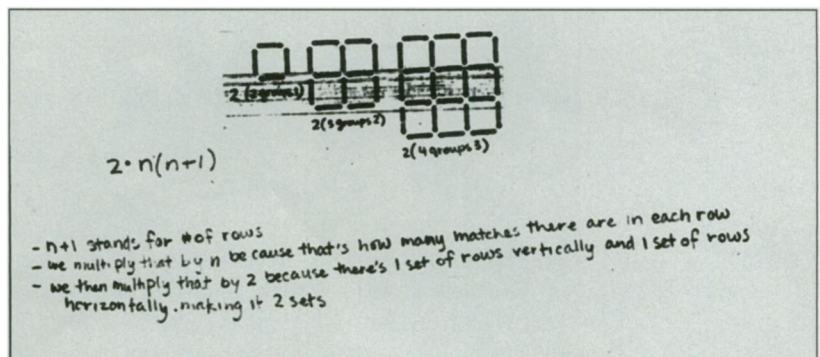 2 (2 groups 1)
2(3 groups 2)
2(4 groups 3)
2• n(n+1)
- n+1 stands for # of rows
- we multiply that by n because that's how many matches there are in each row
- we then multiply that by 2 because there's 1 set of rows vertically and 1 set of rows
horizontally. making it 2 sets